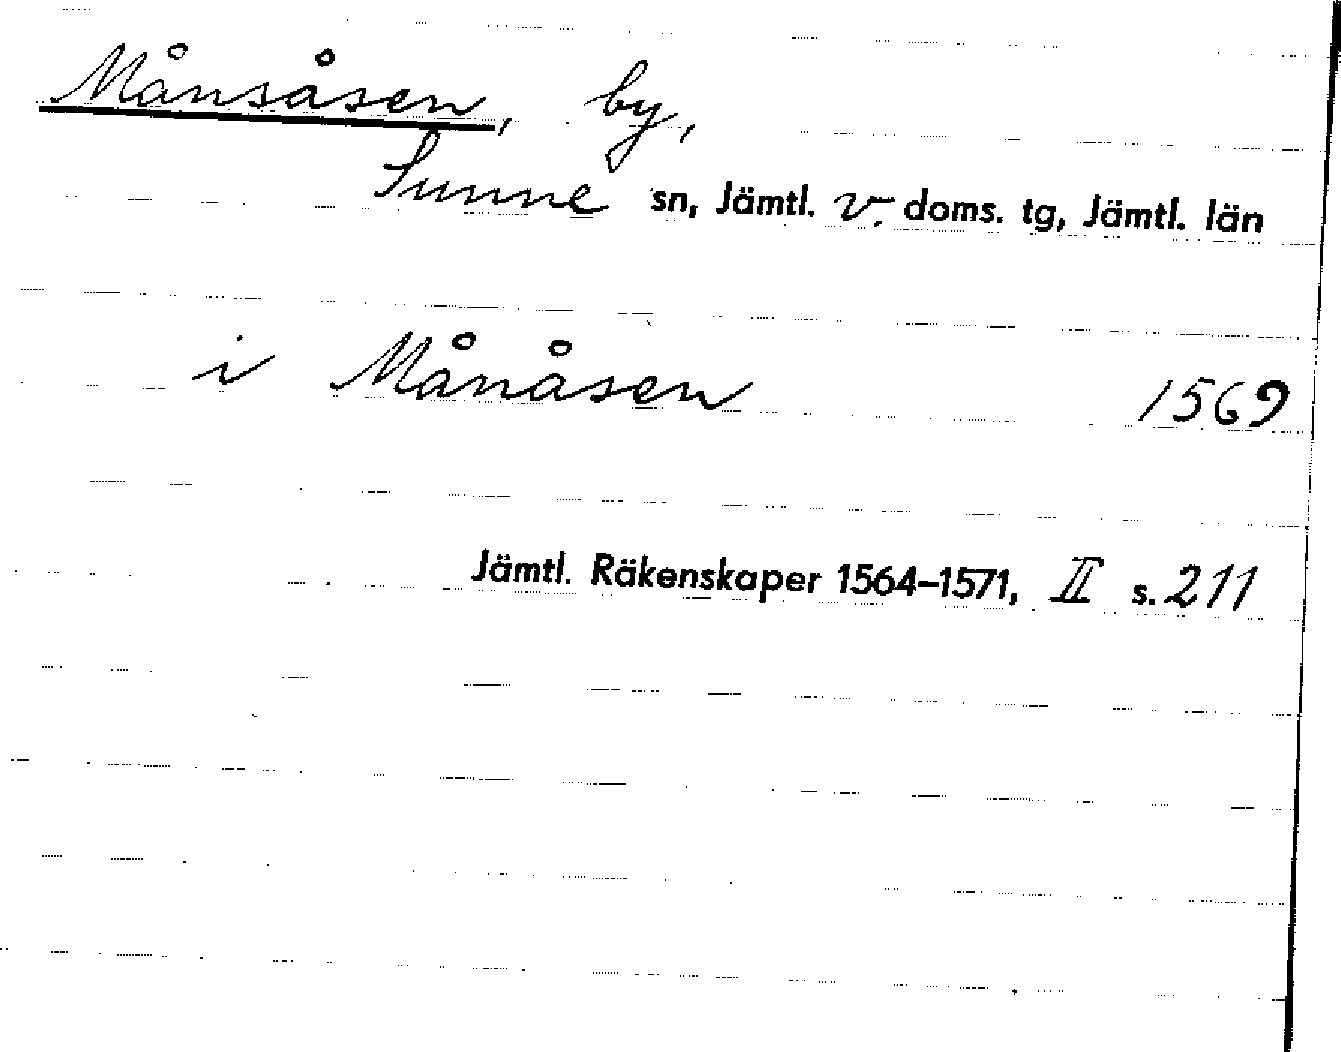 Månsåsen, by,
Sunne sn, Jämtl. v. doms. tg, Jämtl. län
i Månåsen 1569
Jämtl. Räkenskaper 1564–1571, II s. 211